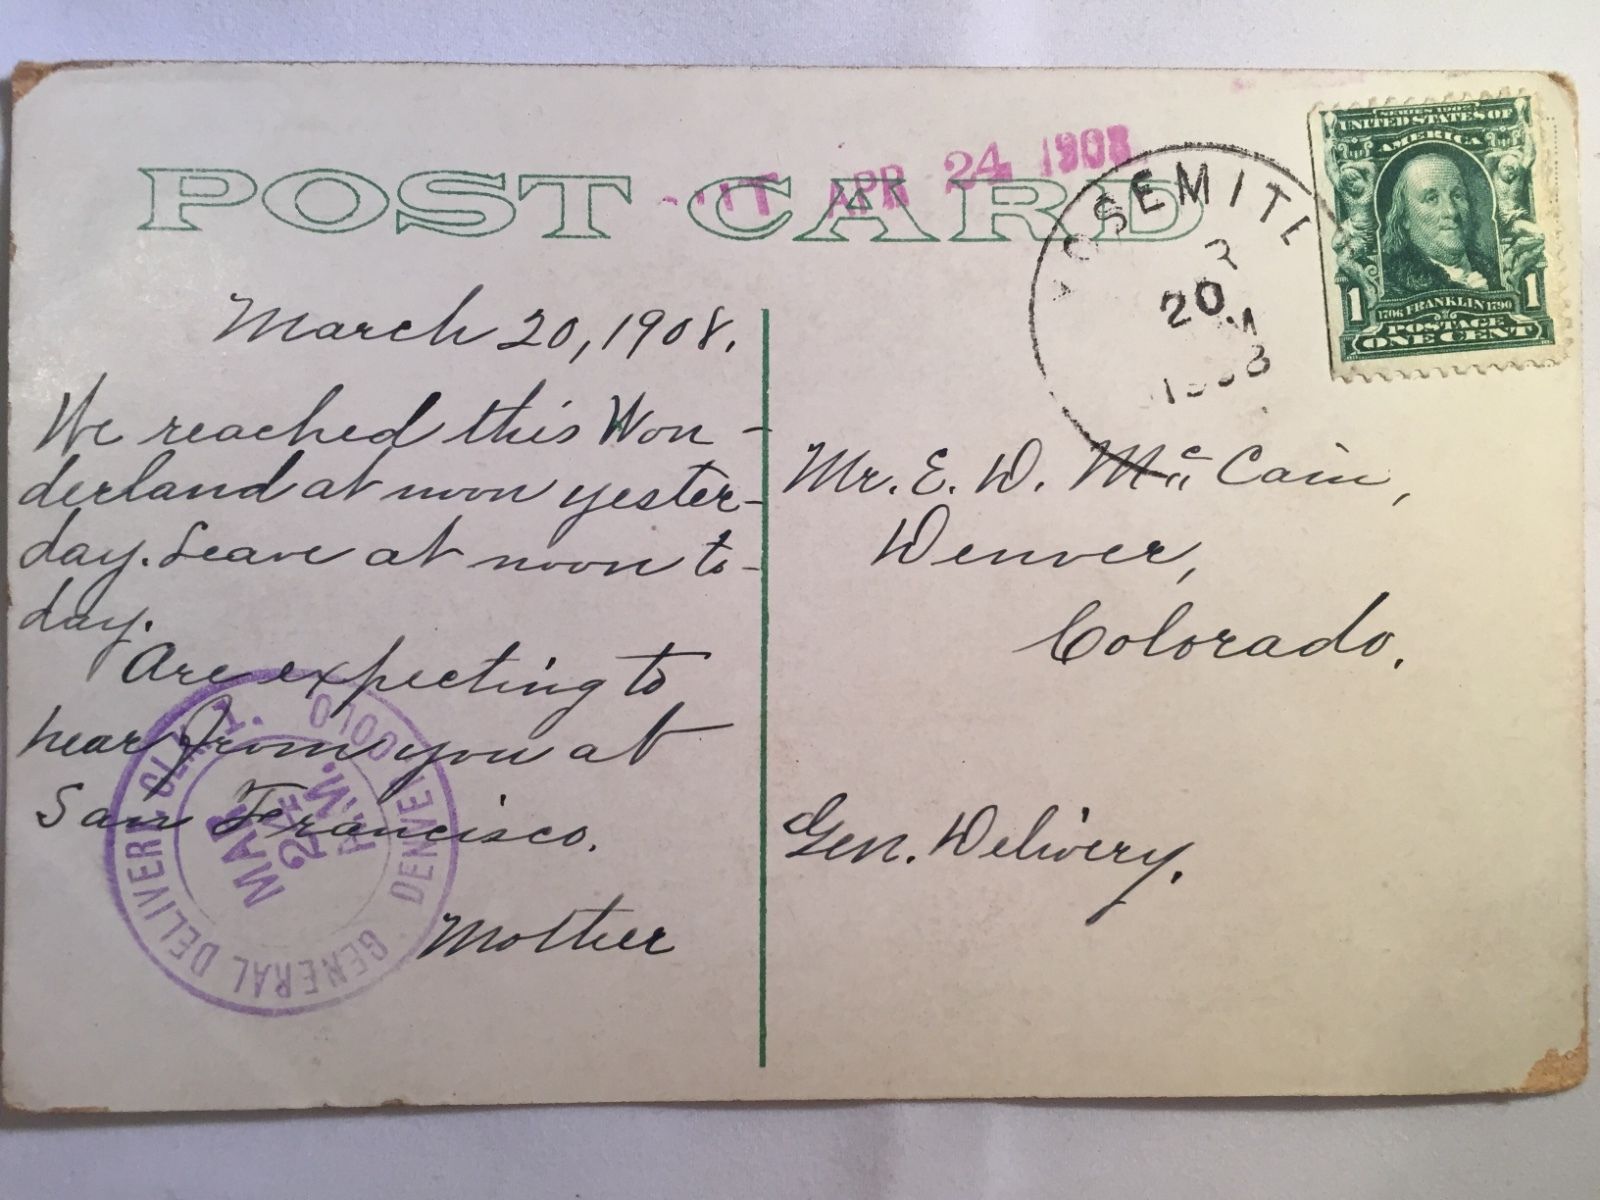 POST CARD
APR 24 1908
YOSEMITE
20
1908
SERIES 1902
UNITED STATES OF
AMERICA
1706 FRANKLIN 1790
1 1
POSTAGE
ONE CENT
March 20, 1908.
We reached this Won-
derland at noon yester-
day. Leave at noon to-
day.
Are expecting to
hear from you at
San Francisco.
Mother
Mr. E. W. McCain,
Denver,
Colorado.
Gen. Delivery.
GENERAL DELIVERY CLK 1.
DENVER COLO
MAR
24
A.M.